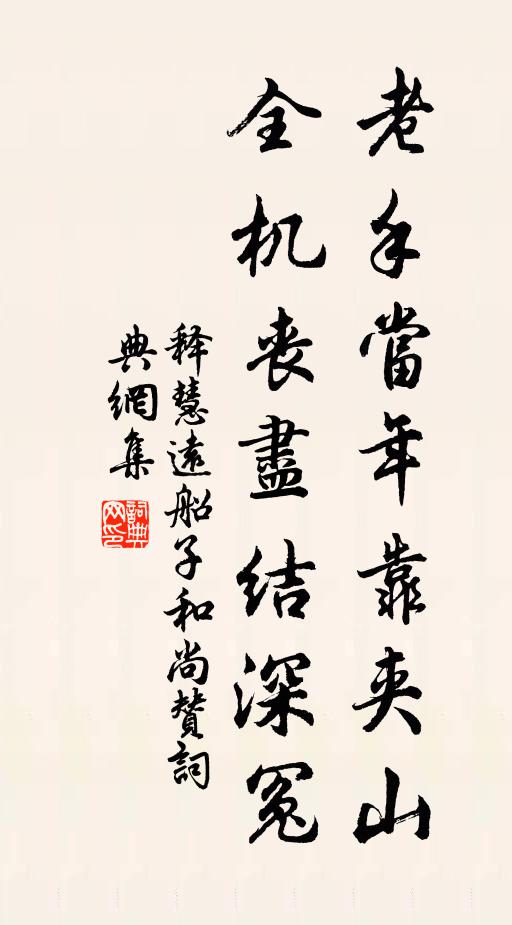 老手當年靠夹山
全机丧盡结深冤
释慧遠船子和尚赞詞
典網集
詞典网印